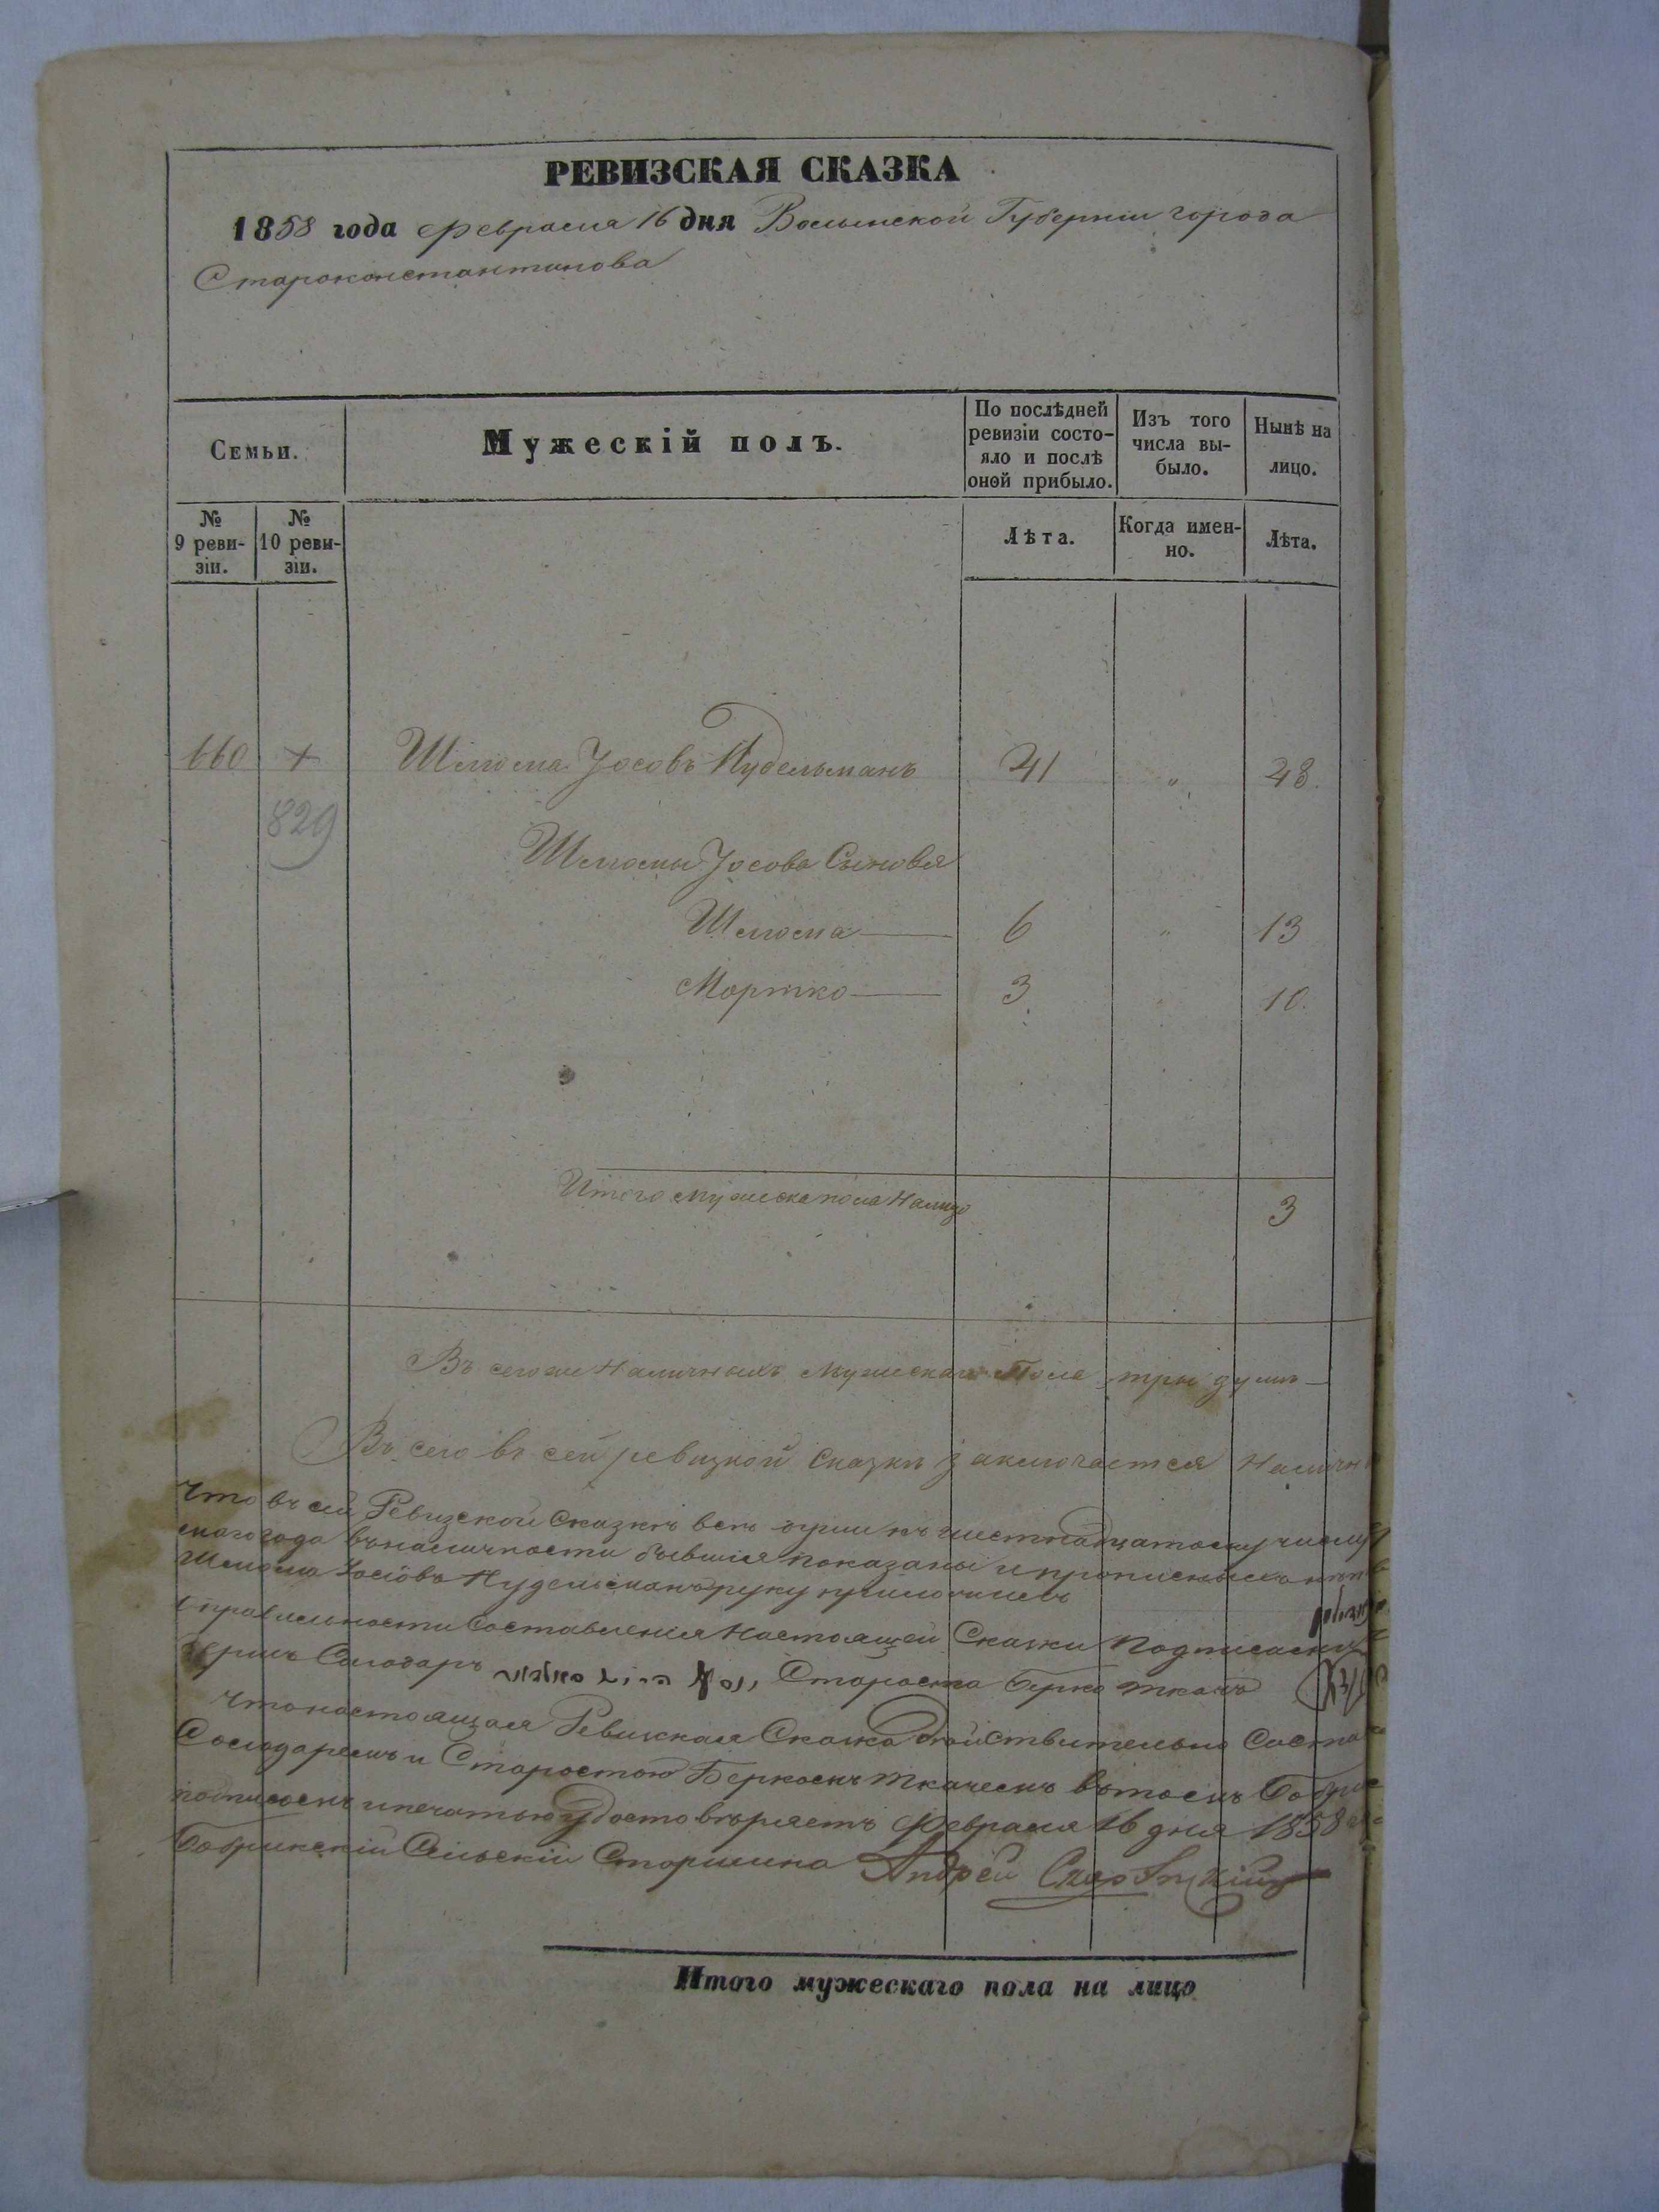 РЕВИЗСКАЯ СКАЗКА
1858 года февраля 16 дня Волынской Губерніи города
Староконстантинова
Семьи.
Мужескій полъ.
По послѣдней ревизіи состо-яло и послѣ оной прибыло.
Изъ того числа вы-было.
Нынѣ на лицо.
№ 9 реви-зіи.
№ 10 реви-зіи.
Лѣта.
Когда имен-но.
Лѣта.
660 + Шлiома Іосовъ Нудельманъ 41 " 48.
829
Шлiомы Іосова Сыновья
Шлiома 6 " 13
Мортко 3 " 10.
Итого мужеска пола Налицо 3
Въ сего же Наличныхъ Мужескаго Пола три душъ
Въ сего въ сей ревизкой Сказки заключается
Что въ сей Ревизской Сказкѣ всѣ души къ шестнадцатому числу
года въ наличности бывшіе показаны и прописныхъ нѣтъ
Шлiома Іосiовъ Нудельманъ руку приложилъ
правильности Составленія Настоящей Сказки Подписасмъ
Солодарь Староста Берко Ткачъ
Что настоящая Ревизская Сказка Дѣйствительно
Солодаремъ и Старостою Беркомъ Ткачемъ въ томъ
подписомъ и печатью удостовѣряетъ Февраля 16 дня 1858
Сельскій Старшина Андрей
Итого мужескаго пола на лицо